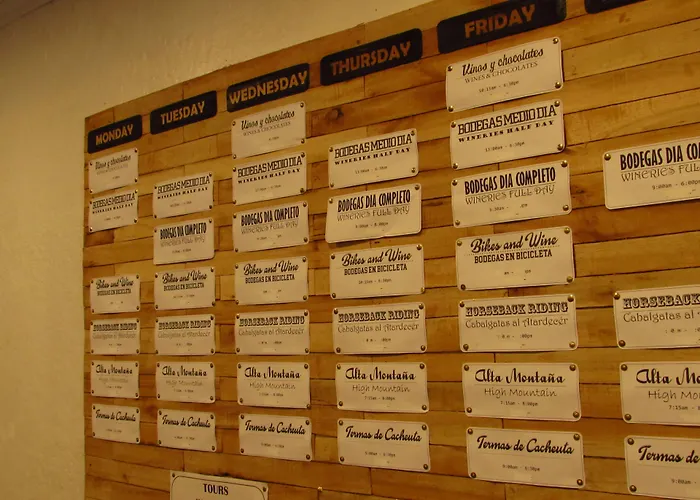 MONDAY
TUESDAY
WEDNESDAY
THURSDAY
FRIDAY
Vinos y chocolates
WINES & CHOCOLATES
BODEGAS MEDIO DIA
WINERIES HALF DAY
Bikes and Wine
BODEGAS EN BICICLETA
HORSEBACK RIDING
Cabalgatas al Atardecer
Alta Montaña
High Mountain
Termas de Cacheuta
BODEGAS MEDIO DIA
WINERIES HALF DAY
BODEGAS DIA COMPLETO
WINERIES FULL DAY
Bikes and Wine
BODEGAS EN BICICLETA
HORSEBACK RIDING
Cabalgatas al Atardecer
Alta Montaña
High Mountain
Termas de Cacheuta
Vinos y chocolates
WINES & CHOCOLATES
BODEGAS MEDIO DIA
WINERIES HALF DAY
BODEGAS DIA COMPLETO
WINERIES FULL DAY
Bikes and Wine
BODEGAS EN BICICLETA
HORSEBACK RIDING
Cabalgatas al Atardecer
Alta Montaña
High Mountain
Termas de Cacheuta
BODEGAS MEDIO DIA
WINERIES HALF DAY
BODEGAS DIA COMPLETO
WINERIES FULL DAY
Bikes and Wine
BODEGAS EN BICICLETA
HORSEBACK RIDING
Cabalgatas al Atardecer
Alta Montaña
High Mountain
Termas de Cacheuta
Vinos y chocolates
WINES & CHOCOLATES
BODEGAS MEDIO DIA
WINERIES HALF DAY
BODEGAS DIA COMPLETO
WINERIES FULL DAY
Bikes and Wine
BODEGAS EN BICICLETA
HORSEBACK RIDING
Cabalgatas al Atardecer
Alta Montaña
High Mountain
Termas de Cacheuta
BODEGAS DIA COMPL
WINERIES FULL DAY
HORSEBACK RIDING
Cabalgatas al
Alta Montaña
High Mountain
Termas de Cacheu
TOURS